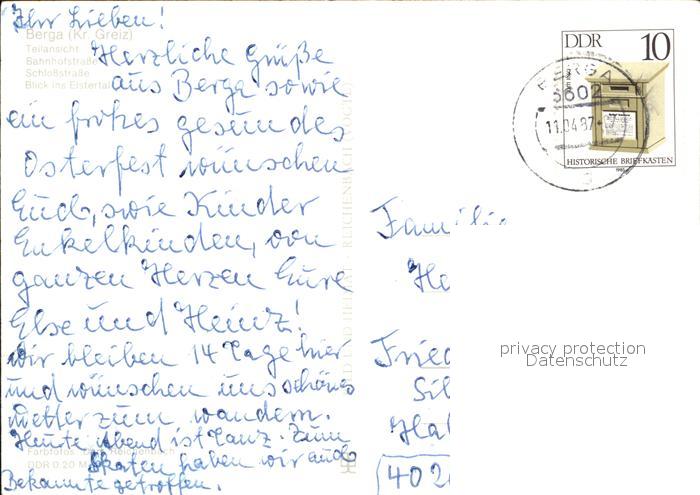 Ihr Lieben!
Berga (Kr. Greiz)
Teilansicht
Bahnhofstraße
Schloßstraße
Blick ins Elstertal
Herzliche Grüße
aus Berga sowie
ein frohes gesundes
Osterfest wünschen
Euch, sowie Kinder
Enkelkinden, von
ganzen Herzen Eure
Else und Heinz!
Wir bleiben 14 Tage hier
und wünschen uns schönes
Wetter zum wandern.
Heute Abend ist Tanz. Zum
Skaten haben wir auch
Bekannte getroffen.
Farbfotos: Reichenbach
DDR 0,20 M
REICHENBACH
DDR 10
HISTORISCHE BRIEFKASTEN
BERGA
6602
11.04.87
Familie
He
Fried
Sil
Hal
402
privacy protection
Datenschutz